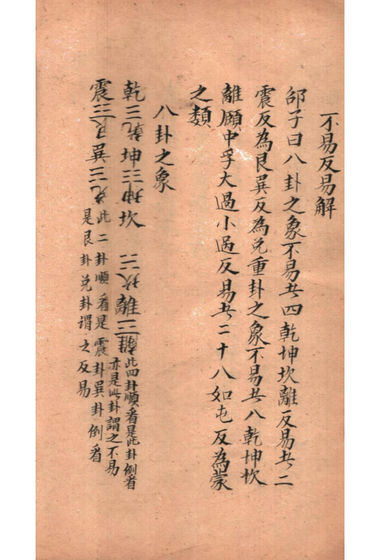 不易反易解
邵子曰八卦之象不易者四乾坤坎離反易者二
震反為艮巽反為兌重卦之象不易者八乾坤坎
離頤中孚大過小過反易者二十八如屯反為蒙
之類
八卦之象
乾☰乾坤☷坤坎☵坎離☲離
此四卦順看是此卦倒看
亦是此卦謂之不易
震☳艮巽☴兌
此二卦順看是震卦巽卦倒看
是艮卦兌卦謂之反易